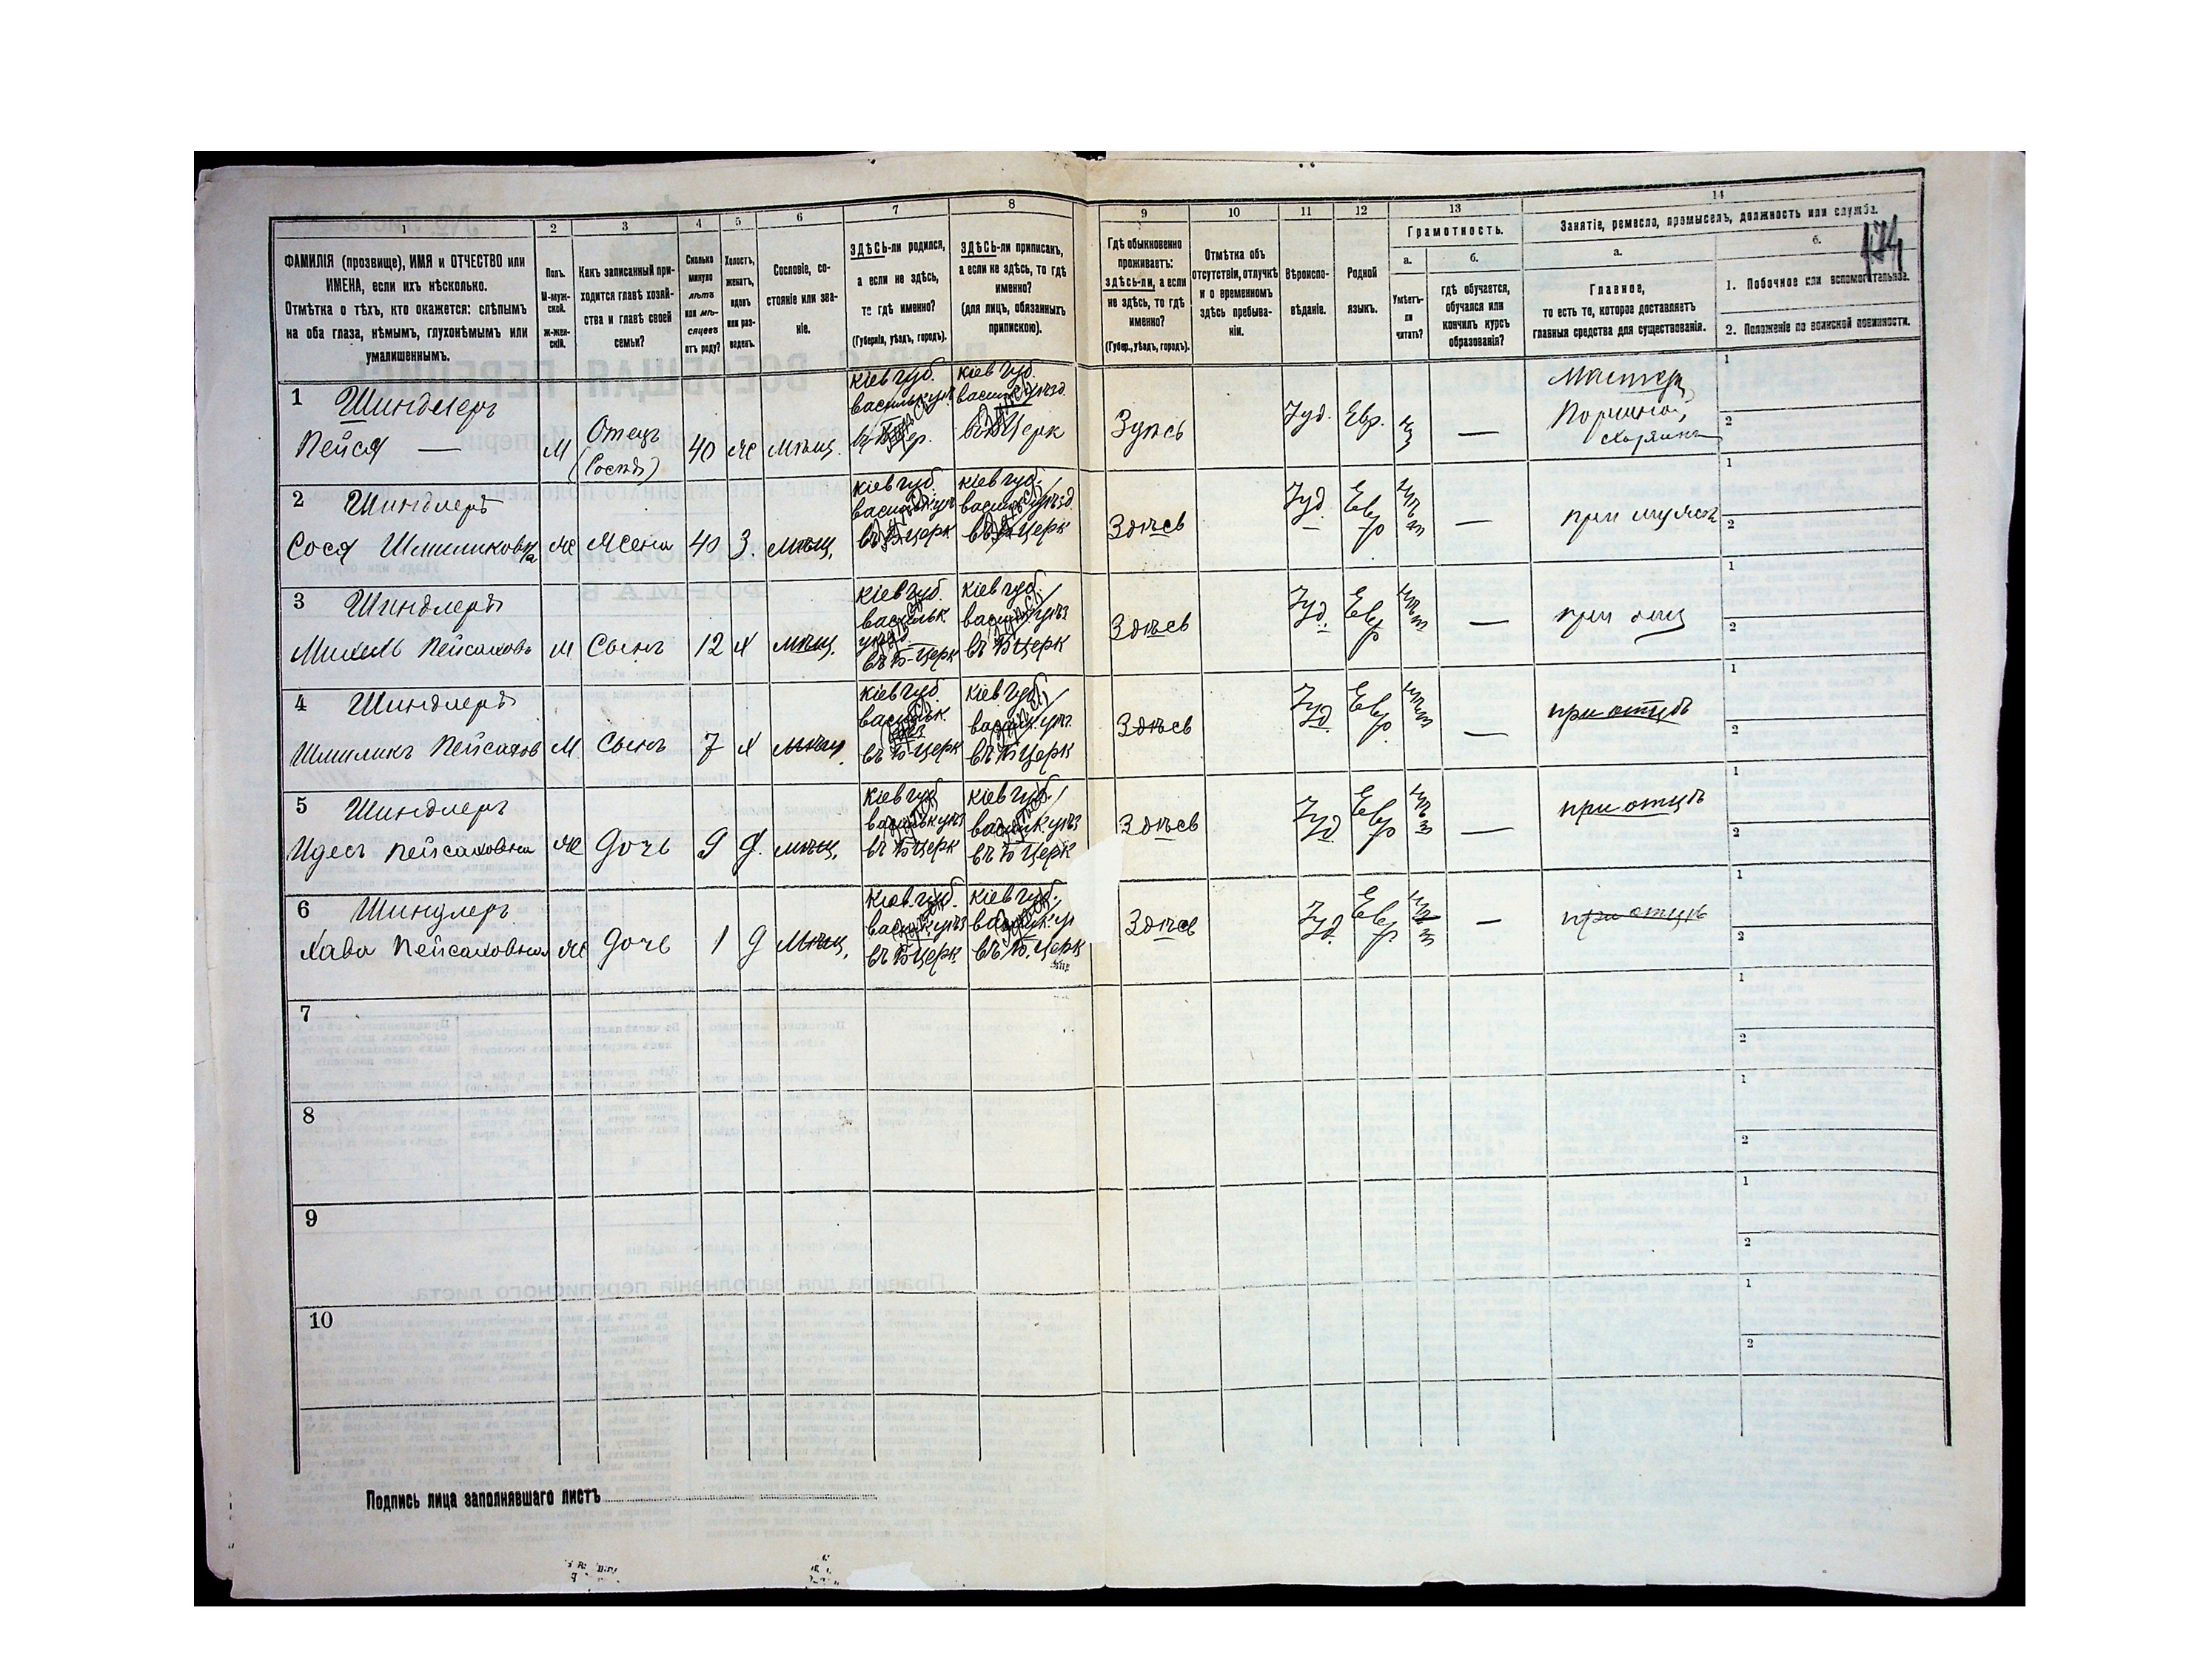 1
2
3
4
5
6
7
8
9
10
11
12
13
14
ФАМИЛІЯ (прозвище), ИМЯ и ОТЧЕСТВО или
ИМЕНА, если ихъ нѣсколько.
Отмѣтка о тѣхъ, кто окажется: слѣпымъ
на оба глаза, нѣмымъ, глухонѣмымъ или
умалишеннымъ.
Полъ.
М-муж-
ской.
Ж-жен-
скій.
Какъ записанный при-
ходится главѣ хозяй-
ства и главѣ своей
семьи?
Сколько
минуло
лѣтъ
или мѣ-
сяцевъ
отъ роду?
Холостъ,
женатъ,
вдовъ
или раз-
веденъ.
Сословіе, со-
стояніе или зва-
ніе.
ЗДѢСЬ-ли родился,
а если не здѣсь,
то гдѣ именно?
(Губернія, уѣздъ, городъ).
ЗДѢСЬ-ли приписанъ,
а если не здѣсь, то гдѣ
именно?
(для лицъ, обязанныхъ
припискою).
Гдѣ обыкновенно
проживаетъ:
здѣсь-ли, а если
не здѣсь, то гдѣ
именно?
(Губер., уѣздъ, городъ).
Отмѣтка объ
отсутствіи, отлучкѣ
и о временномъ
здѣсь пребыва-
ніи.
Вѣроиспо-
вѣданіе.
Родной
языкъ.
Грамотность.
а.
Умѣетъ-
ли
читать?
б.
гдѣ обучается,
обучался или
кончилъ курсъ
образованія?
Занятіе, ремесло, промыселъ, должность или служба.
а.
Главное,
то есть то, которое доставляетъ
главныя средства для существованія.
б.
1. Побочное или вспомогательное.
2. Положеніе по воинской повинности.
174
1 Шиндлеръ
Пейся — М Отецъ 40 же Мѣщ.
Кіев губ.
Б Цер.
Кіев губ.
Б Церк
Здѣсь Іуд. Евр. —
Мастер
Портной,
Хозяинъ
1
2
2 Шиндлеръ
Сося Шмиликовна же Жена 40 З. мѣщ.
Кіев губ.
въ Б Церк
Кіев губ.
въ Б Церк
Здѣсь Іуд. Евр нѣт — при мужѣ
1
2
3 Шиндлеръ
Михель Пейсахов м Сынъ 12 х мѣщ.
Кіев губ.
васильк
въ Б-Церк
Кіев губ
въ Б Церк
Здѣсь Іуд. Евр нѣт — при отц
1
2
4 Шиндлеръ
Шмиликъ Пейсахов М Сынъ 7 х мѣщ.
Кіев губ
васильк.
въ Б-Церк
Кіев губ
въ Б Церк
Здѣсь Іуд. Евр. нѣт — при отцѣ
1
2
5 Шиндлеръ
Идесъ Пейсаховна же дочь 9 д. мѣщ.
Кіев губ
въ Б Церк
Кіев губ.
въ Б Церк
Здѣсь Іуд. Евр нѣт — при отцѣ
1
2
6 Шиндлеръ
Хава Пейсаховна же дочь 1 д Мѣщ.
Кіев. губ.
въ Б Церк
Кіев губ.
въ Б. Церк
Здѣсь Іуд. Евр нѣт — при отцѣ
1
2
7
1
2
8
1
2
9
1
2
10
1
2
Подпись лица заполнявшаго листъ